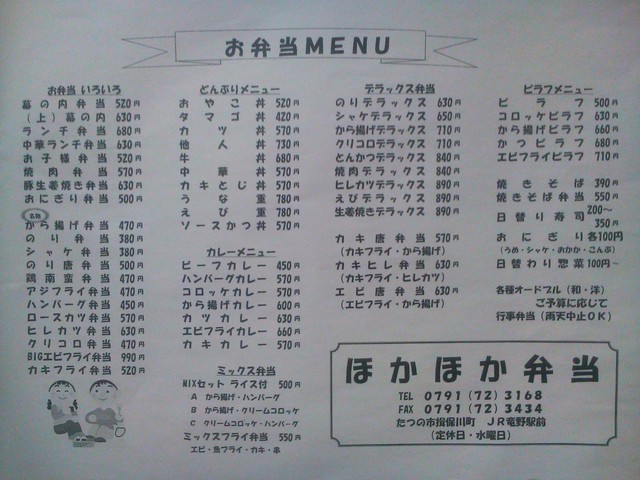 お弁当MENU
お弁当いろいろ
幕の内弁当 520円
(上)幕の内 630円
ランチ弁当 680円
中華ランチ弁当 630円
お子様弁当 520円
焼肉弁当 570円
豚生姜焼き弁当 630円
おにぎり弁当 500円
名物
から揚げ弁当 470円
のり弁当 380円
シャケ弁当 380円
のり唐弁当 500円
鶏南蛮弁当 470円
アジフライ弁当 470円
ハンバーグ弁当 450円
ロースカツ弁当 570円
ヒレカツ弁当 630円
クリコロ弁当 470円
BIGエビフライ弁当 990円
カキフライ弁当 520円
どんぶりメニュー
おやこ丼 520円
タマゴ丼 420円
カツ丼 570円
他人丼 730円
牛丼 680円
中華丼 570円
カキとじ丼 570円
うな重 780円
えび重 780円
ソースかつ丼 570円
カレーメニュー
ビーフカレー 450円
ハンバーグカレー 570円
コロッケカレー 570円
から揚げカレー 600円
カツカレー 630円
エビフライカレー 660円
カキカレー 570円
ミックス弁当
MIXセット ライス付 500円
A から揚げ・ハンバーグ
B から揚げ・クリームコロッケ
C クリームコロッケ・ハンバーグ
ミックスフライ弁当 550円
エビ・魚フライ・カキ・串
デラックス弁当
のりデラックス 630円
シャケデラックス 650円
から揚げデラックス 710円
クリコロデラックス 710円
とんかつデラックス 840円
焼肉デラックス 840円
ヒレカツデラックス 890円
えびデラックス 890円
生姜焼きデラックス 890円
カキ唐弁当 570円
(カキフライ・から揚げ)
カキヒレ弁当 630円
(カキフライ・ヒレカツ)
エビ唐弁当 630円
(エビフライ・から揚げ)
ピラフメニュー
ピラフ 500円
コロッケピラフ 630円
から揚げピラフ 660円
かつピラフ 680円
エビフライピラフ 710円
焼きそば 390円
焼きそば弁当 550円
日替り寿司 200〜
350円
おにぎり 各100円
(うめ・シャケ・おかか・こんぶ)
日替わり惣菜 100円〜
各種オードブル(和・洋)
ご予算に応じて
行事弁当(雨天中止OK)
ほかほか弁当
TEL 0791(72)3168
FAX 0791(72)3434
たつの市揖保川町 JR竜野駅前
(定休日・水曜日)